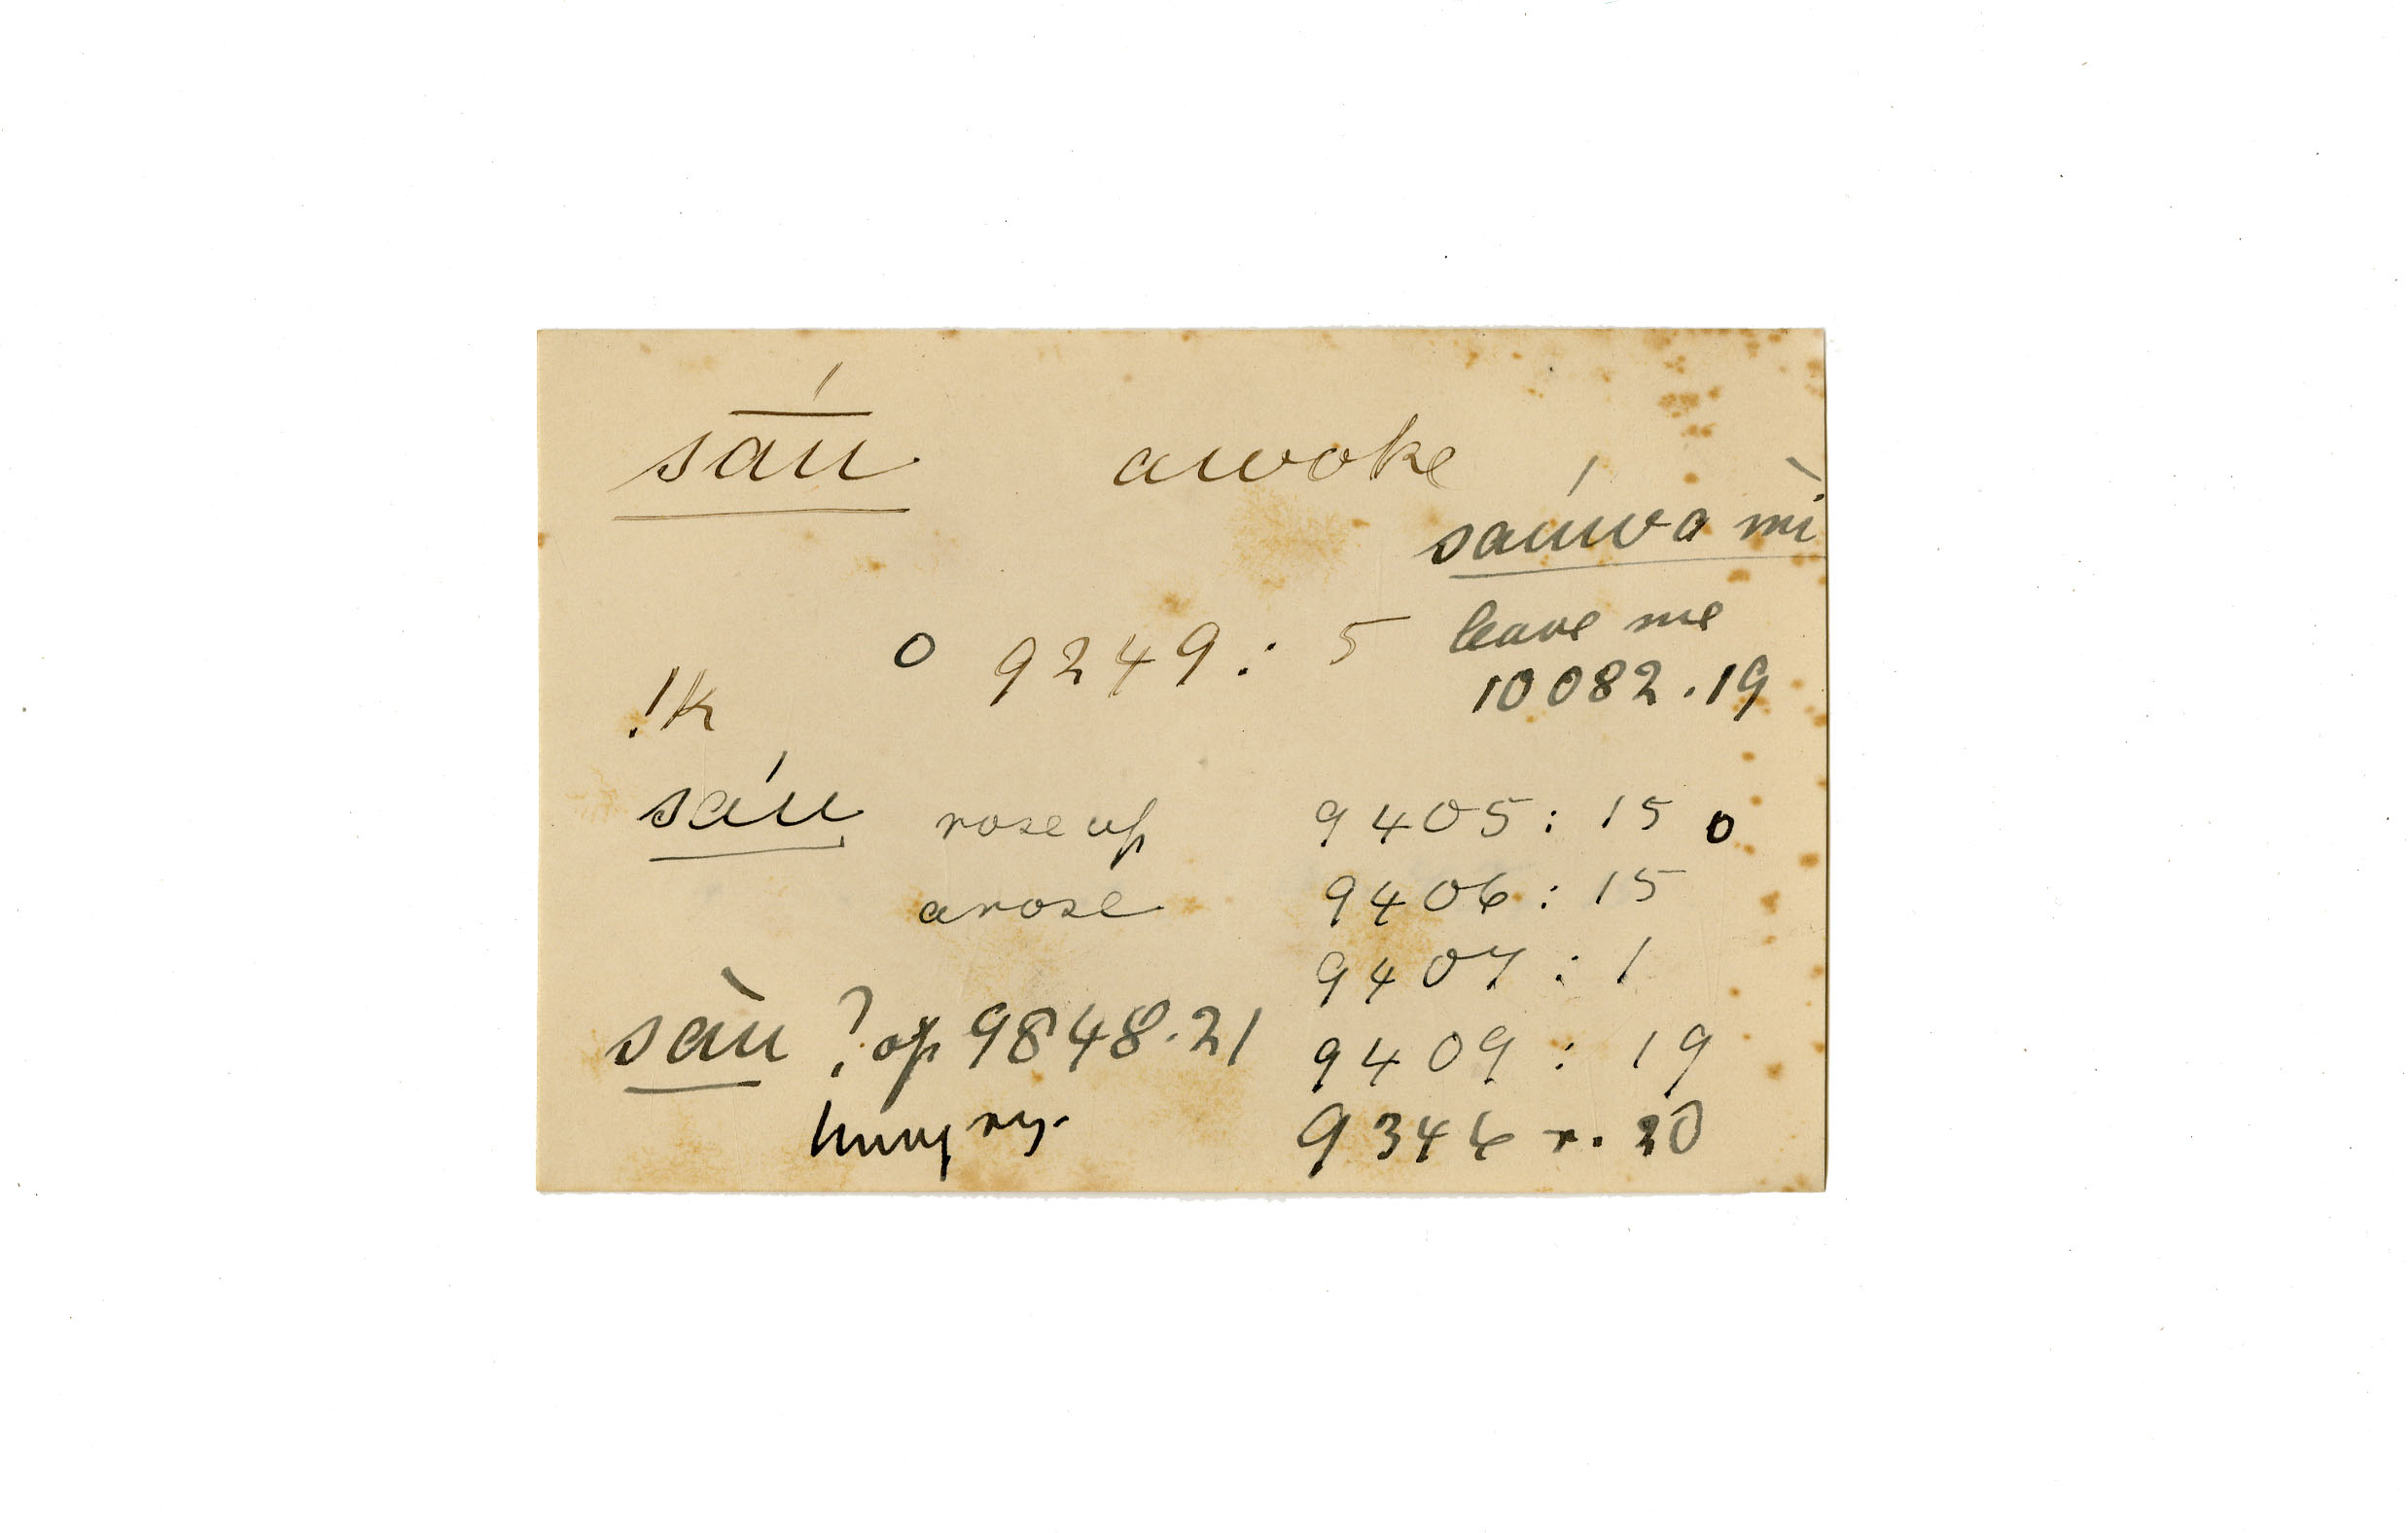 sā́u awoke
saúwa mì
leave me
10082.19
o 9249: 5
!k
sáu rose up 9405: 15 o
arose 9406: 15
9407: 1
sàu ? op 9848.21 9409: 19
hungry. 9346 r. 20